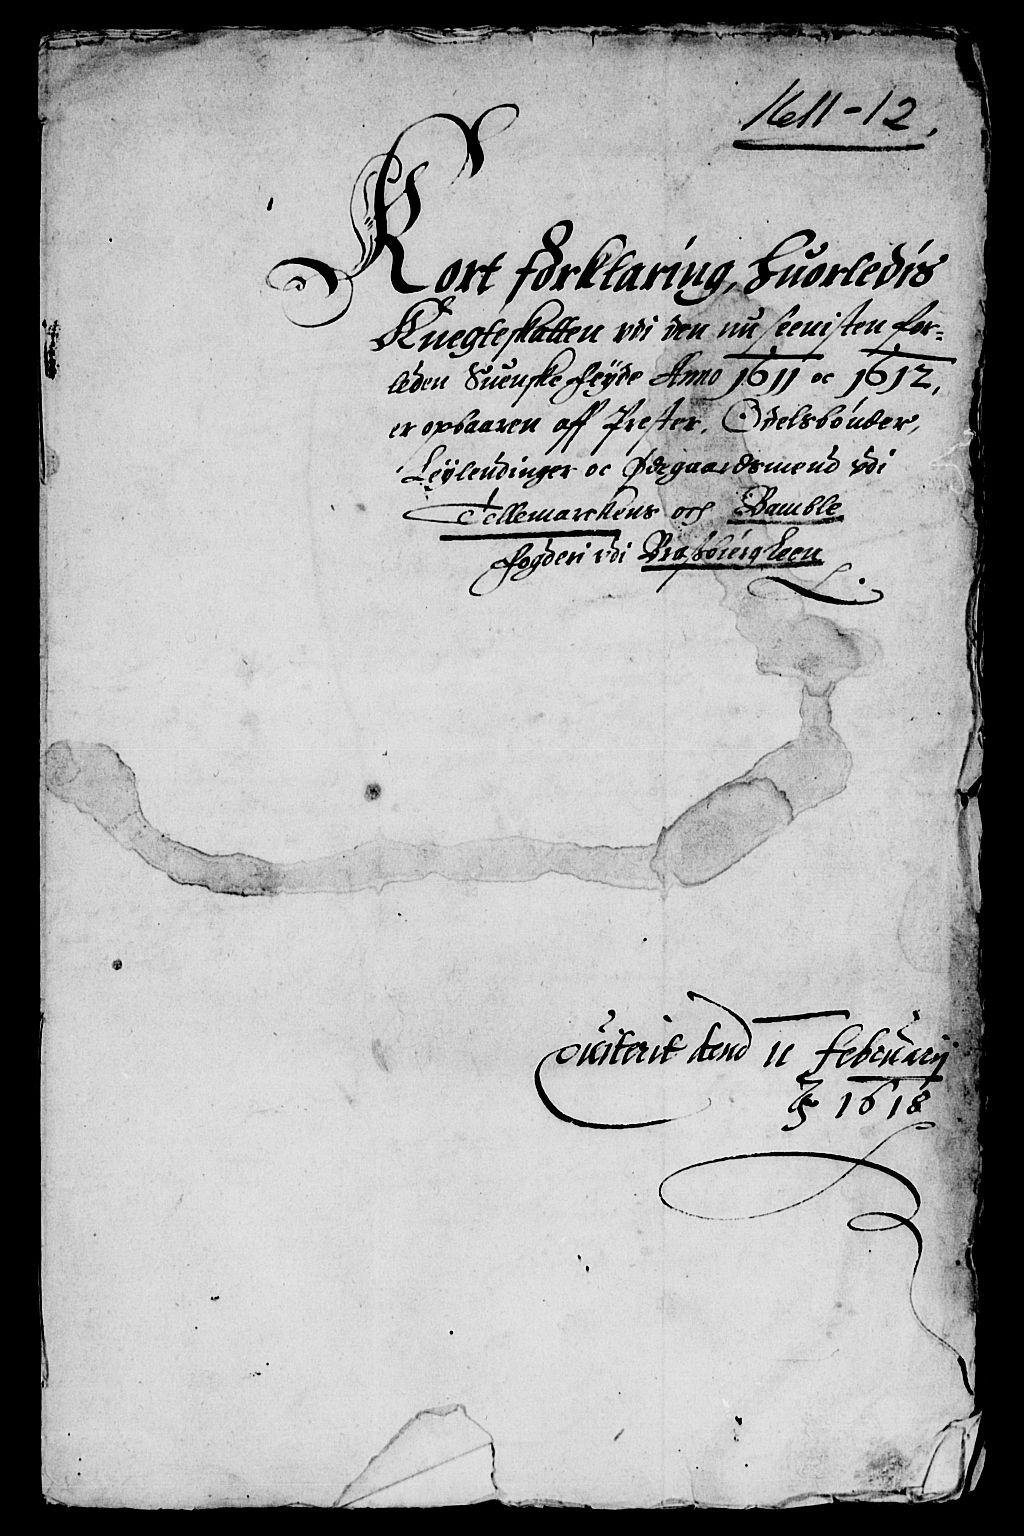 1611-12.
Kort forklaring, huorledis
Knegteskatten vdi den nu seeniste for-
leden Suenske feyde Anno 1611 oc 1612,
er opbaaren aff Prester, Odelsbønder,
Leylendinger oc Ødegaardsmend vdi
Tellemarckens och Bamble
fogderi vdi Bratsbierg Leen
qviterit den 11 februarij
1618